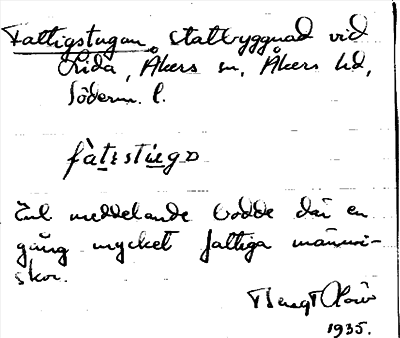 Fattigstugan, statbyggnad vid
Lida, Åkers sn, Åkers hd,
Söderm. l.
fàtistu̲gɒ
Enl meddelande bodde där en
gång mycket fattiga männi-
skor.
Bengt
1935.